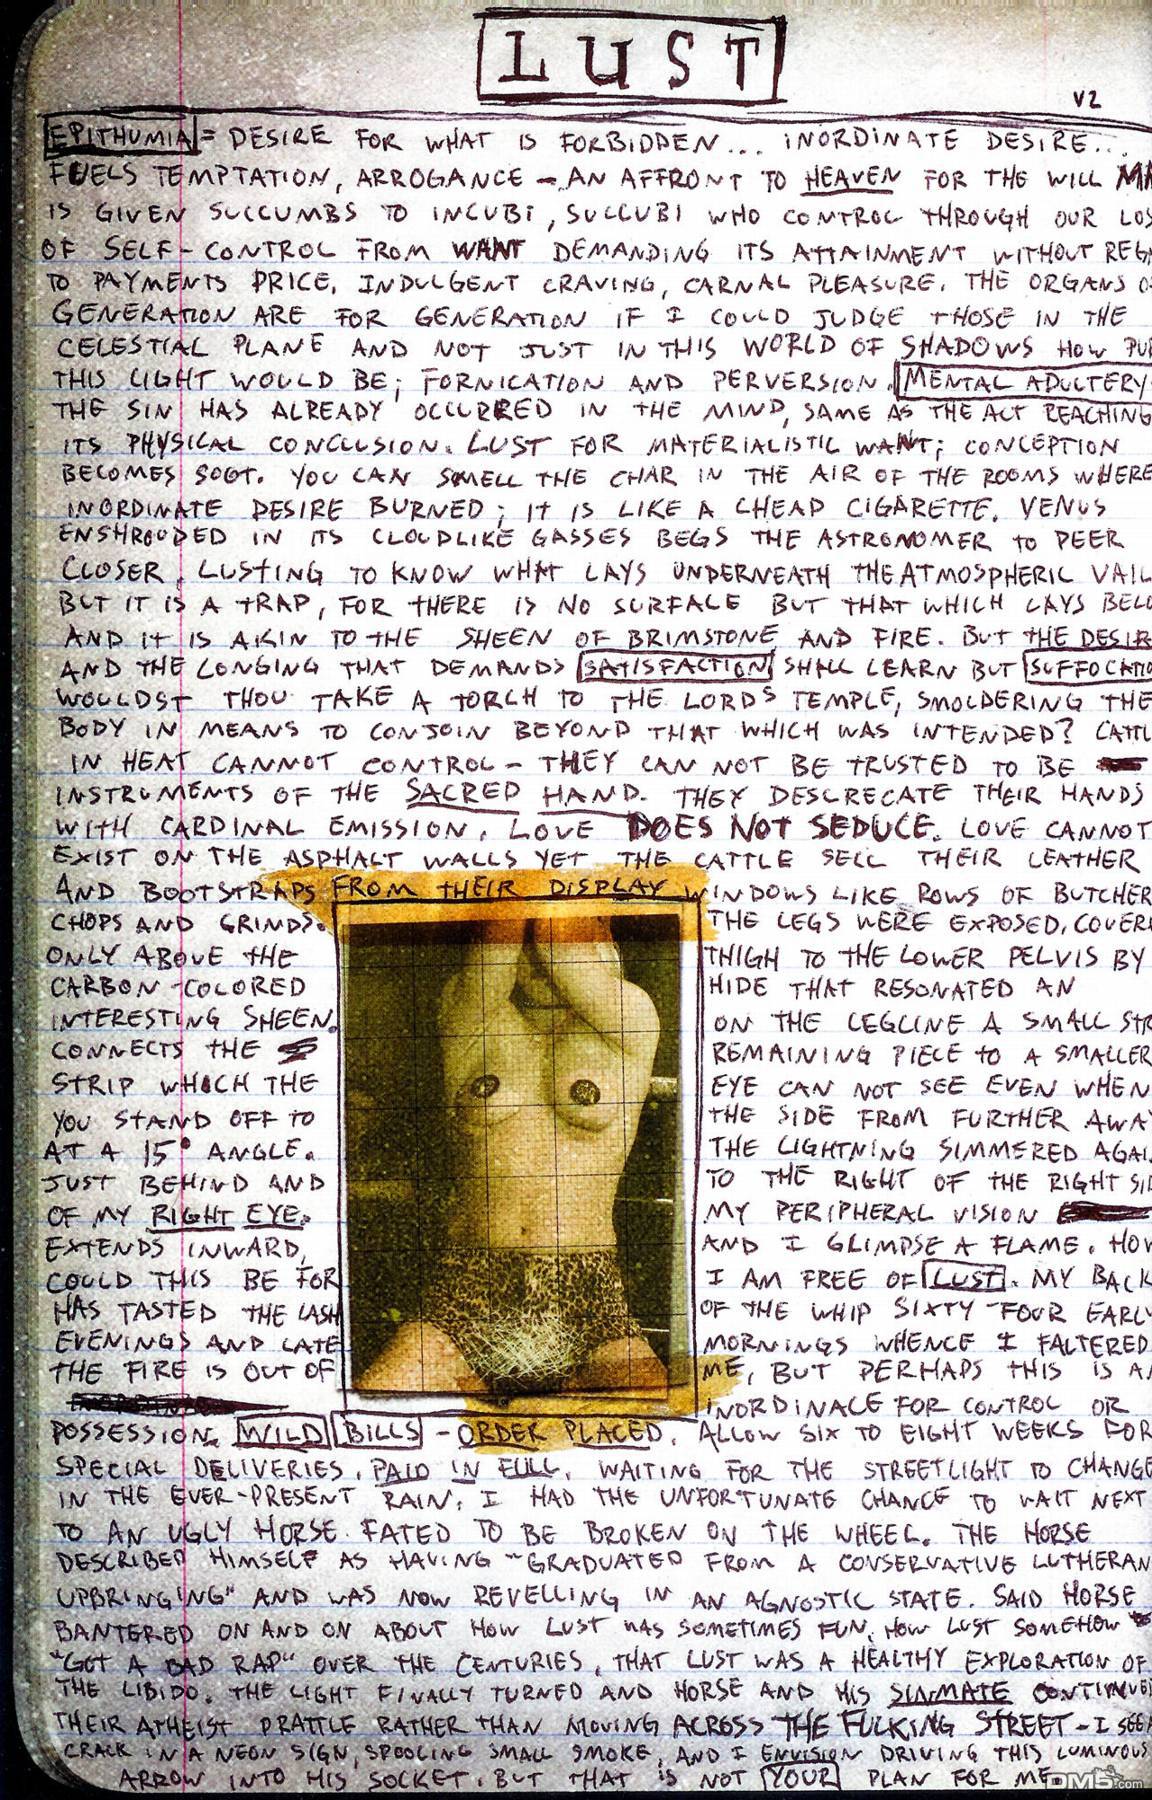 LUST
V2
EPITHUMIA = DESIRE FOR WHAT IS FORBIDDEN... INORDINATE DESIRE...
FUELS TEMPTATION, ARROGANCE - AN AFFRONT TO HEAVEN FOR THE WILL MA
IS GIVEN SUCCUMBS TO INCUBI, SUCCUBI WHO CONTROL THROUGH OUR LOS
OF SELF-CONTROL FROM WANT DEMANDING ITS ATTAINMENT WITHOUT REGA
TO PAYMENTS PRICE. INDULGENT CRAVING, CARNAL PLEASURE. THE ORGANS OF
GENERATION ARE FOR GENERATION IF I COULD JUDGE THOSE IN THE
CELESTIAL PLANE AND NOT JUST IN THIS WORLD OF SHADOWS HOW PUR
THIS LIGHT WOULD BE; FORNICATION AND PERVERSION. MENTAL ADULTERY
THE SIN HAS ALREADY OCCURRED IN THE MIND, SAME AS THE ACT REACHING
ITS PHYSICAL CONCLUSION. LUST FOR MATERIALISTIC WANT; CONCEPTION
BECOMES SOOT. YOU CAN SMELL THE CHAR IN THE AIR OF THE ROOMS WHERE
INORDINATE DESIRE BURNED; IT IS LIKE A CHEAP CIGARETTE. VENUS
ENSHROUDED IN ITS CLOUDLIKE GASSES BEGS THE ASTRONOMER TO PEER
CLOSER, LUSTING TO KNOW WHAT LAYS UNDERNEATH THE ATMOSPHERIC VAIL
BUT IT IS A TRAP, FOR THERE IS NO SURFACE BUT THAT WHICH LAYS BELO
AND IT IS AKIN TO THE SHEEN OF BRIMSTONE AND FIRE. BUT THE DESIR
AND THE LONGING THAT DEMANDS SATISFACTION SHALL LEARN BUT SUFFOCATIO
WOULDST THOU TAKE A TORCH TO THE LORDS TEMPLE, SMOLDERING THE
BODY IN MEANS TO CONJOIN BEYOND THAT WHICH WAS INTENDED? CATTL
IN HEAT CANNOT CONTROL - THEY CAN NOT BE TRUSTED TO BE
INSTRUMENTS OF THE SACRED HAND. THEY DESCRECATE THEIR HANDS
WITH CARDINAL EMISSION. LOVE DOES NOT SEDUCE. LOVE CANNOT
EXIST ON THE ASPHALT WALLS YET THE CATTLE SELL THEIR LEATHER
AND BOOTSTRAPS FROM THEIR DISPLAY WINDOWS LIKE ROWS OF BUTCHER
CHOPS AND GRINDS. THE LEGS WERE EXPOSED, COVERE
ONLY ABOVE THE THIGH TO THE LOWER PELVIS BY
CARBON-COLORED HIDE THAT RESONATED AN
INTERESTING SHEEN. ON THE LEGLINE A SMALL STR
CONNECTS THE REMAINING PIECE TO A SMALLER
STRIP WHICH THE EYE CAN NOT SEE EVEN WHEN
YOU STAND OFF TO THE SIDE FROM FURTHER AWAY
AT A 15° ANGLE. THE LIGHTNING SIMMERED AGAI
JUST BEHIND AND TO THE RIGHT OF THE RIGHT SID
OF MY RIGHT EYE. MY PERIPHERAL VISION
EXTENDS INWARD, AND I GLIMPSE A FLAME. HOW
COULD THIS BE FOR I AM FREE OF LUST. MY BACK
HAS TASTED THE LASH OF THE WHIP SIXTY-FOUR EARLY
EVENINGS AND LATE MORNINGS WHENCE I FALTERED
THE FIRE IS OUT OF ME, BUT PERHAPS THIS IS AN
INORDINACE FOR CONTROL OR
POSSESSION. WILD BILLS - ORDER PLACED. ALLOW SIX TO EIGHT WEEKS FOR
SPECIAL DELIVERIES. PAID IN FULL. WAITING FOR THE STREETLIGHT TO CHANGE
IN THE EVER-PRESENT RAIN. I HAD THE UNFORTUNATE CHANCE TO WAIT NEXT
TO AN UGLY HORSE FATED TO BE BROKEN ON THE WHEEL. THE HORSE
DESCRIBED HIMSELF AS HAVING "GRADUATED FROM A CONSERVATIVE LUTHERAN
UPBRINGING" AND WAS NOW REVELLING IN AN AGNOSTIC STATE. SAID HORSE
BANTERED ON AND ON ABOUT HOW LUST WAS SOMETIMES FUN, HOW LUST SOMEHOW
"GOT A BAD RAP" OVER THE CENTURIES, THAT LUST WAS A HEALTHY EXPLORATION OF
THE LIBIDO. THE LIGHT FINALLY TURNED AND HORSE AND HIS SINMATE CONTINUED
THEIR ATHEIST PRATTLE RATHER THAN MOVING ACROSS THE FUCKING STREET - I SEE A
CRACK IN A NEON SIGN, SPOOLING SMALL SMOKE, AND I ENVISION DRIVING THIS LUMINOUS
ARROW INTO HIS SOCKET. BUT THAT IS NOT YOUR PLAN FOR ME.
DM5.com